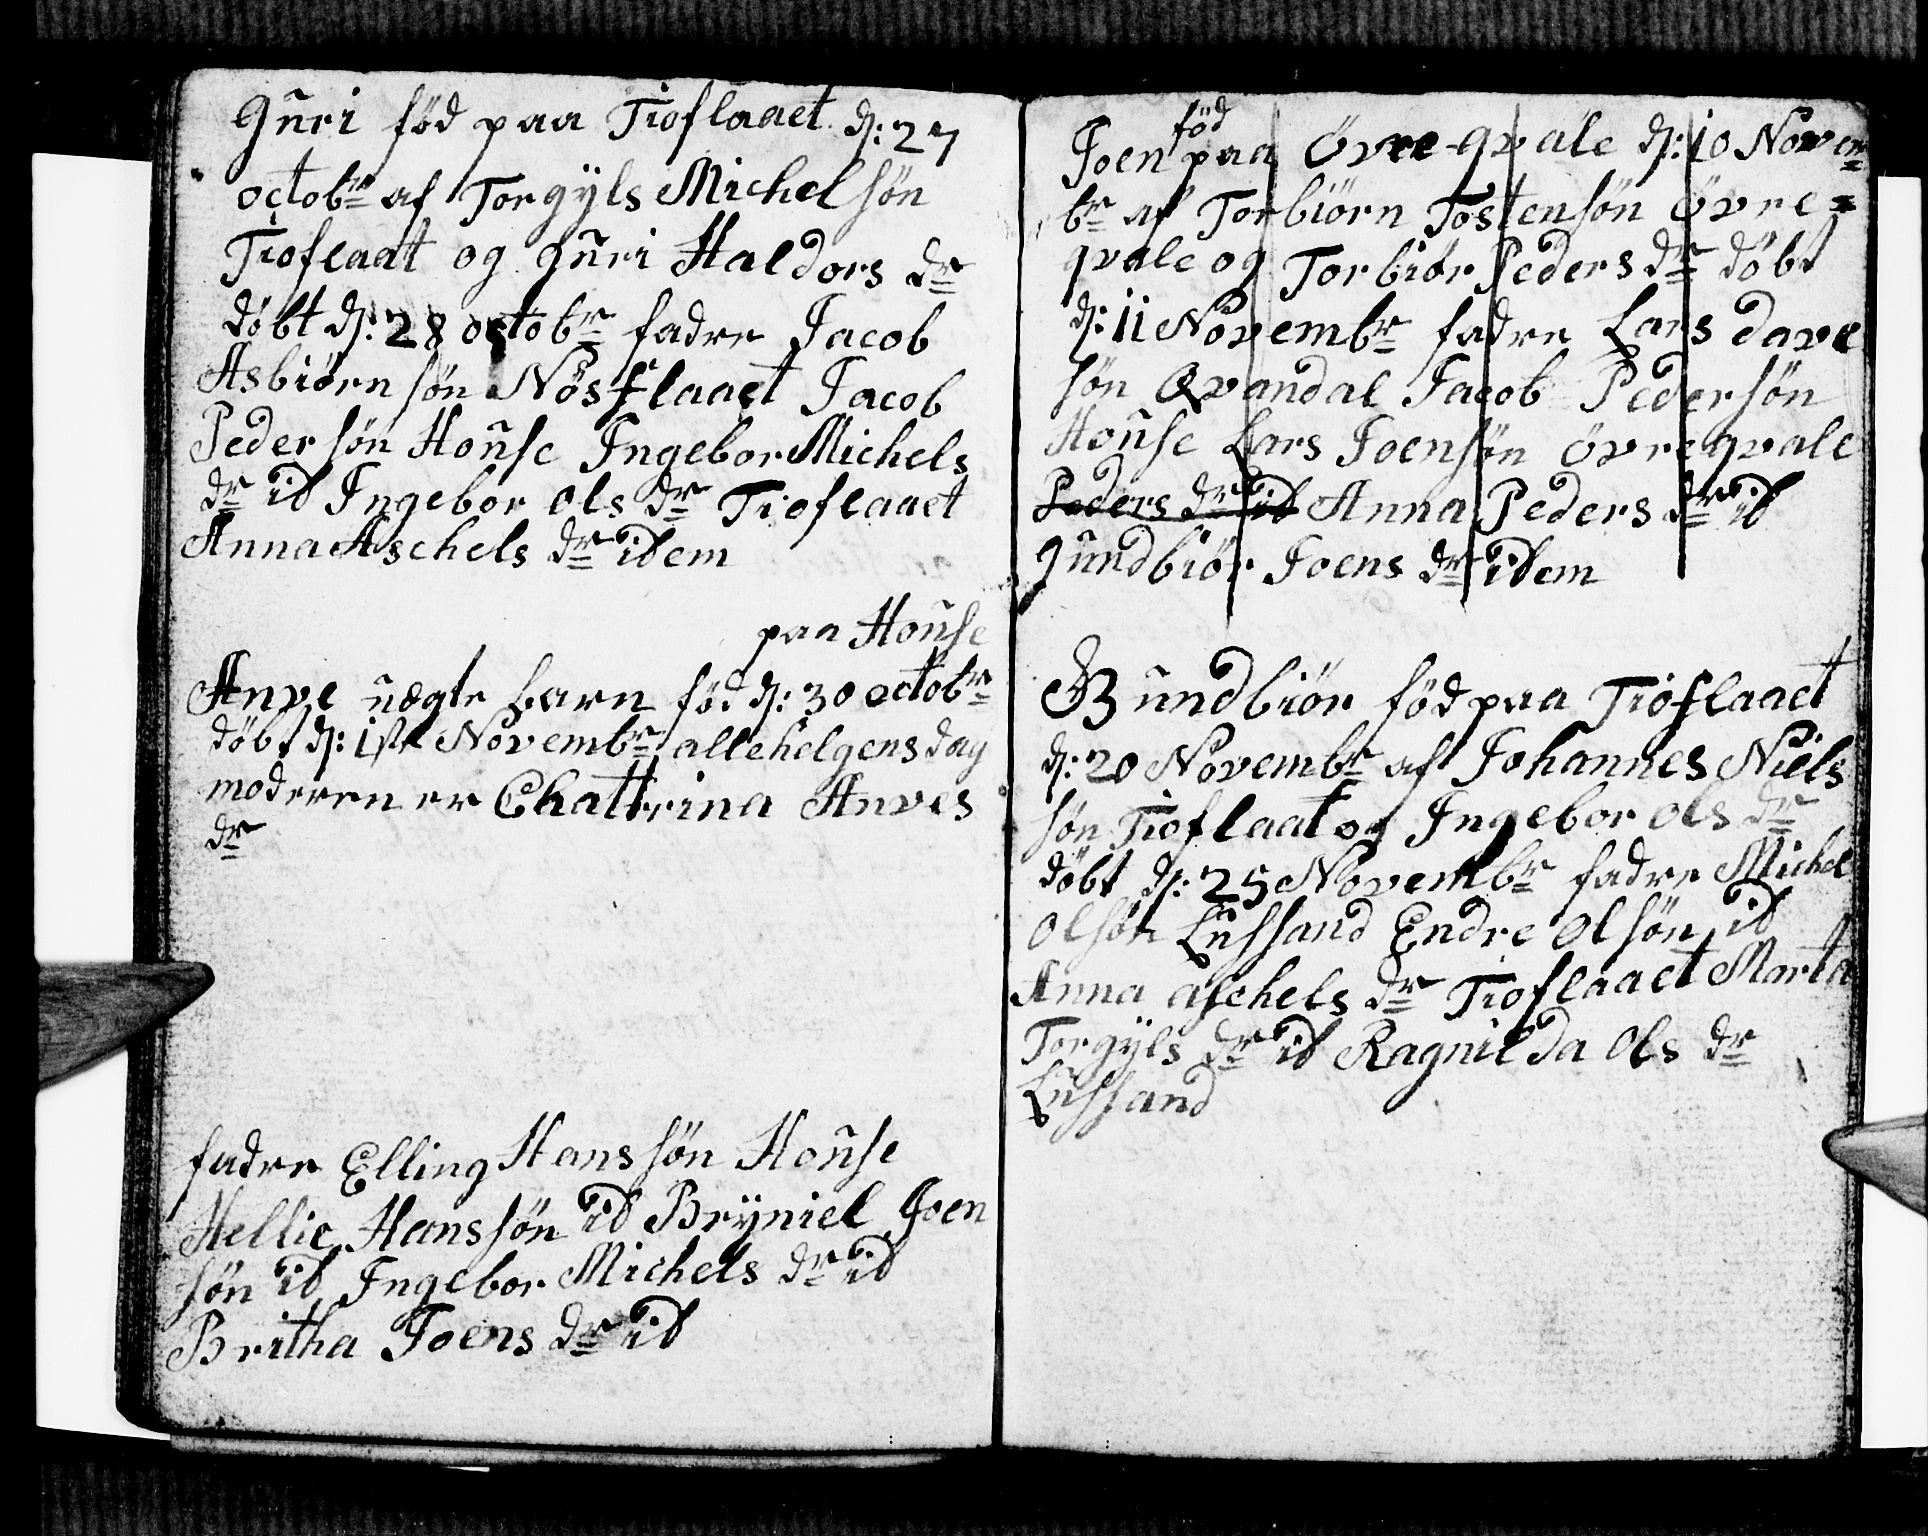 Guri fød paa Tioflaaet d: 27
octobr af Torgÿls Michelsøn
Tioflaat og Guri Haldors dr
døbt d: 28 octobr fadre Jacob
Asbiørnsøn Nøsflaaet Jacob
Pedersøn House Ingebor Michels
dr id Ingebor Ols dr Tioflaaet
Anna Aschels dr idem
paa House
Anve uægte barn fød d: 30 octobr
døbt d: 1ste Novembr allehelgens dag
moderen er Chattrina Anves
dr
fadre Elling Hanssøn House
Hellie Hanssøn id Brÿniel Joen
søn id Ingebor Michels dr id
Britha Joens dr id
fød
Joen paa Øvre-qvale d: 10 Novem
br af Torbiörn Tostensøn Øvre=
qvale og Torbiør Peders dr døbt
d: 11 Novembr fadre Lars Dave
søn Qvandal Jacob Pedersøn
House Lars Joensøn øvreqvale
Peders dr id Anna Peders dr id
Gundbiør Joens dr idem
Gundbiör fød paa Tioflaaet
d: 20 Novembr af Johannes Niels
søn Tioflaat og Ingebor Ols dr
døbt d: 25 Novembr fadre Michel
Olsøn Lussand Endre Olsøn id
Anna aschels dr Tioflaaet Marta
Torgÿls dr id Ragnilda Ols dr
Lussand